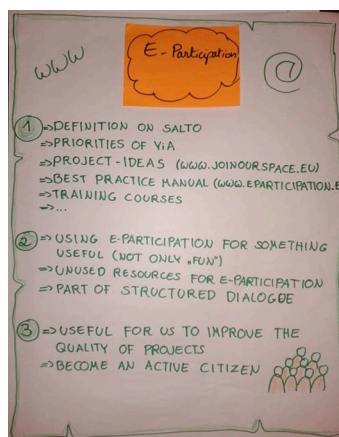 WWW
E-Participation
@
1 ⇒DEFINITION ON SALTO
⇒PRIORITIES OF YiA
⇒PROJECT-IDEAS (WWW.JOINOURSPACE.EU)
⇒BEST PRACTICE MANUAL (WWW.EPARTICIPATION.E
⇒TRAINING COURSES
⇒...
2 ⇒USING E-PARTICIPATION FOR SOMETHING
USEFUL (NOT ONLY „FUN“)
⇒UNUSED RESOURCES FOR E-PARTICIPATION
⇒PART OF STRUCTURED DIALOGUE
3 ⇒USEFUL FOR US TO IMPROVE THE
QUALITY OF PROJECTS
⇒BECOME AN ACTIVE CITIZEN